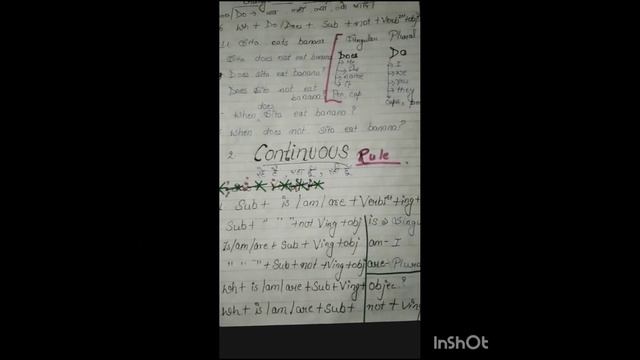 Wh + Do/Does + Sub + not + Verb Ist + obj
Sita eats banana
Singular Plural
Sita does not eat banana
Does Do
Does Sita eat banana?
He I
She we
name you
It they
Does Sita not eat banana?
When does Sita eat banana?
When does not Sita eat banana?
2. Continuous Rule
रहे हैं, रहा है, रही है
Sub + is/am/are + Verb Ist + ing +
Sub + " " " + not Ving + obj
is → Singu
Is/am/are + Sub + Ving + obj
am - I
" " " + Sub + not + Ving + obj
are - Plural
Wh + is/am/are + Sub + Ving + objec?
Wh + is/am/are + Sub + not + Ving
InShOt